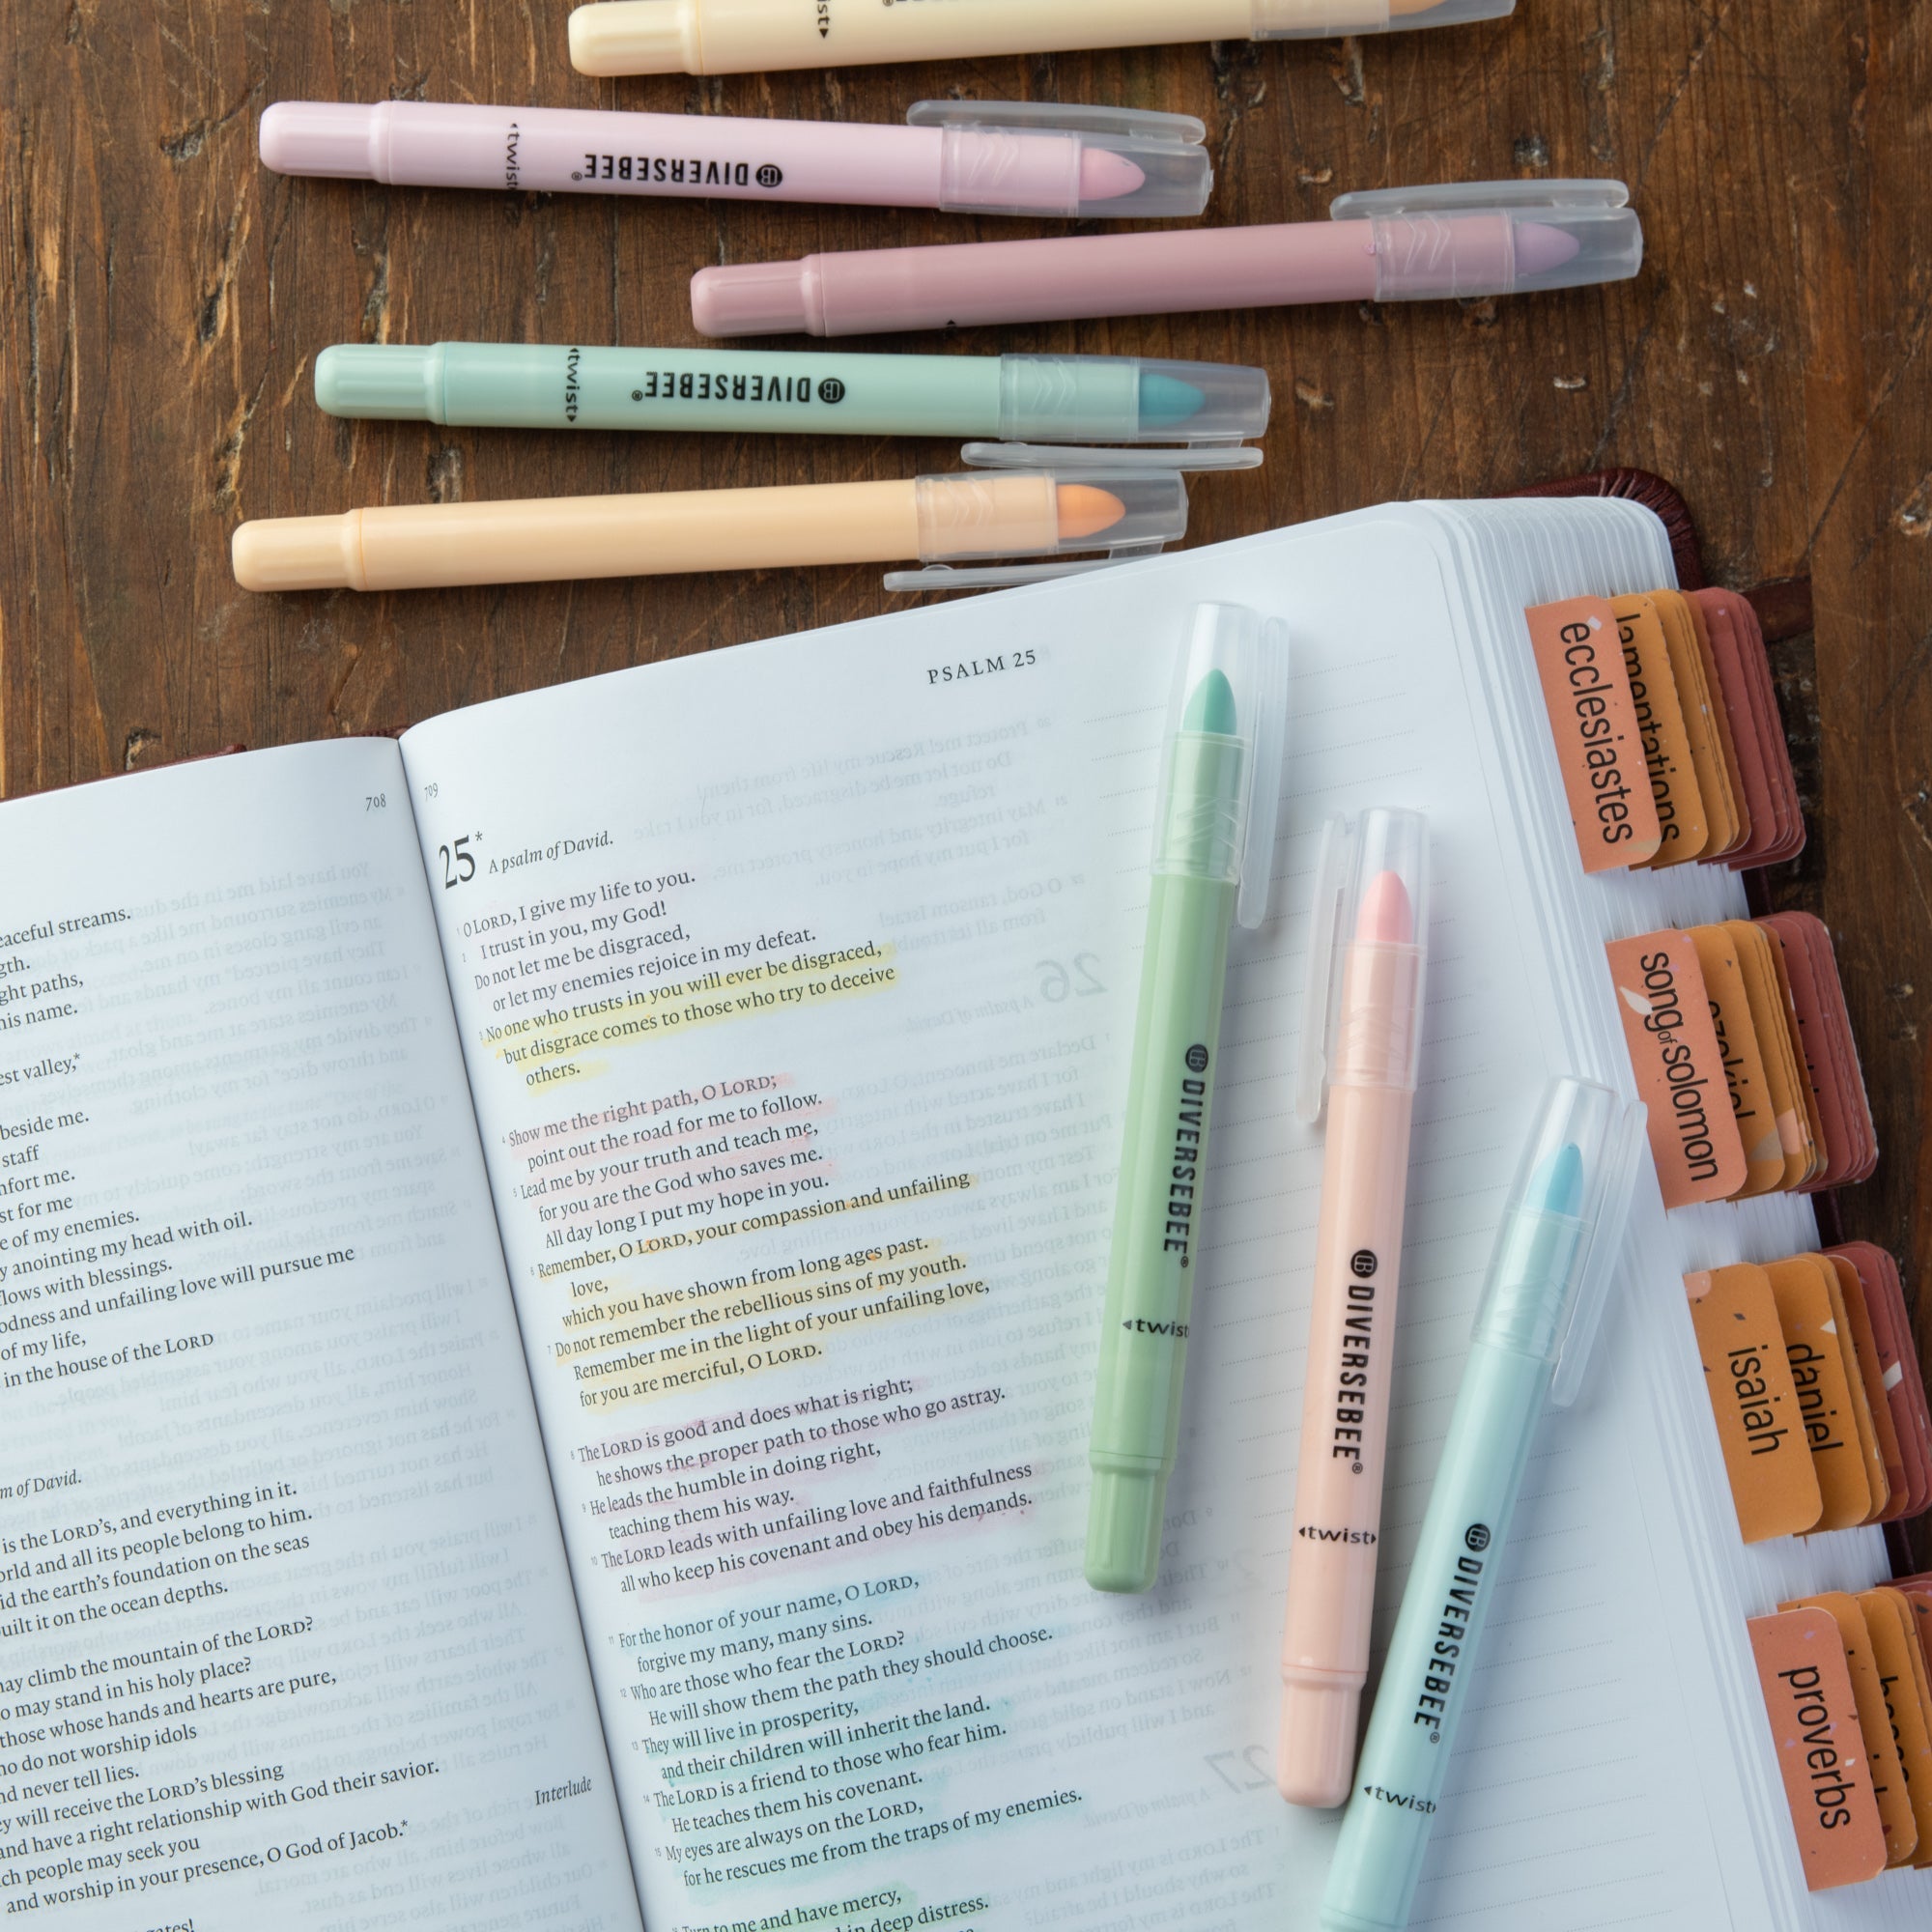 twist
DIVERSEBEE®
twist
DIVERSEBEE®
twist
PSALM 25
708
eaceful streams.
gth.
ght paths,
his name.
est valley,*
beside me.
staff
nfort me.
st for me
e of my enemies.
y anointing my head with oil.
flows with blessings.
odness and unfailing love will pursue me
of my life,
in the house of the LORD
m of David.
is the LORD's, and everything in it.
orld and all its people belong to him.
id the earth's foundation on the seas
built it on the ocean depths.
ay climb the mountain of the LORD?
o may stand in his holy place?
those whose hands and hearts are pure,
o do not worship idols
nd never tell lies.
y will receive the LORD's blessing
and have a right relationship with God their savior.
ch people may seek you
and worship in your presence, O God of Jacob.*
Interlude
gates!
709
25* A psalm of David.
1 O LORD, I give my life to you.
2 I trust in you, my God!
Do not let me be disgraced,
or let my enemies rejoice in my defeat.
3 No one who trusts in you will ever be disgraced,
but disgrace comes to those who try to deceive
others.
4 Show me the right path, O LORD;
point out the road for me to follow.
5 Lead me by your truth and teach me,
for you are the God who saves me.
All day long I put my hope in you.
6 Remember, O LORD, your compassion and unfailing
love,
which you have shown from long ages past.
7 Do not remember the rebellious sins of my youth.
Remember me in the light of your unfailing love,
for you are merciful, O LORD.
8 The LORD is good and does what is right;
he shows the proper path to those who go astray.
9 He leads the humble in doing right,
teaching them his way.
10 The LORD leads with unfailing love and faithfulness
all who keep his covenant and obey his demands.
11 For the honor of your name, O LORD,
forgive my many, many sins.
12 Who are those who fear the LORD?
He will show them the path they should choose.
13 They will live in prosperity,
and their children will inherit the land.
14 The LORD is a friend to those who fear him.
He teaches them his covenant.
15 My eyes are always on the LORD,
for he rescues me from the traps of my enemies.
16 Turn to me and have mercy,
in deep distress.
DIVERSEBEE®
twist
DIVERSEBEE®
twist
DIVERSEBEE®
twist
ecclesiastes
lamentations
song of solomon
ezekiel
isaiah
daniel
proverbs